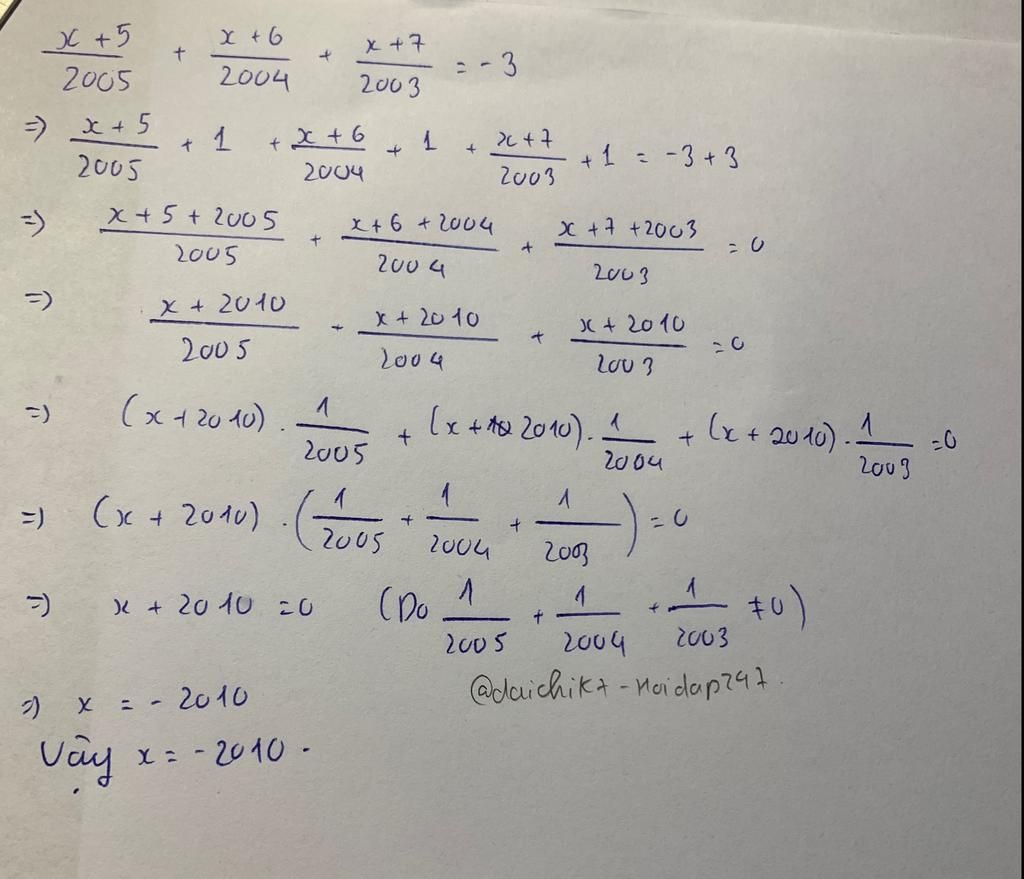 (x + 5)/2005 + (x + 6)/2004 + (x + 7)/2003 = - 3
=> (x + 5)/2005 + 1 + (x + 6)/2004 + 1 + (x + 7)/2003 + 1 = -3 + 3
=> (x + 5 + 2005)/2005 + (x + 6 + 2004)/2004 + (x + 7 + 2003)/2003 = 0
=> (x + 2010)/2005 + (x + 2010)/2004 + (x + 2010)/2003 = 0
=> (x + 2010) . 1/2005 + (x + 2010) . 1/2004 + (x + 2010) . 1/2003 = 0
=> (x + 2010) . (1/2005 + 1/2004 + 1/2003) = 0
=> x + 2010 = 0 (Do 1/2005 + 1/2004 + 1/2003 ≠ 0)
=> x = - 2010
@daichik7 - Hoidap247.
Vậy x = - 2010.